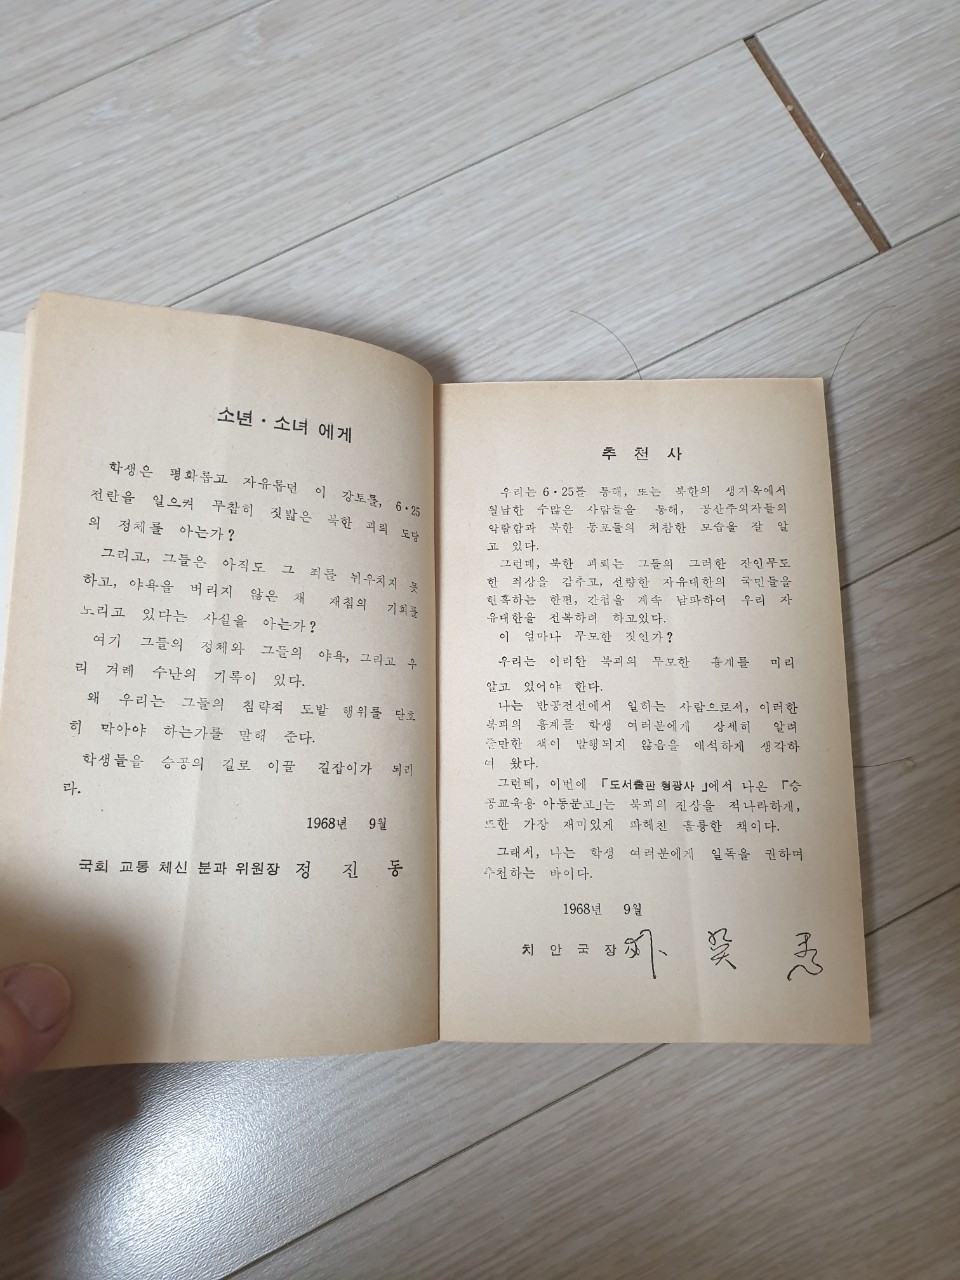 소년・소녀 에게
학생은 평화롭고 자유롭던 이 강토를, 6・25
전란을 일으켜 무참히 짓밟은 북한 괴뢰 도당
의 정체를 아는가?
그리고, 그들은 아직도 그 죄를 뉘우치지 못
하고, 야욕을 버리지 않은 채 재침의 기회를
노리고 있다는 사실을 아는가?
여기 그들의 정체와 그들의 야욕, 그리고 우
리 겨레 수난의 기록이 있다.
왜 우리는 그들의 침략적 도발 행위를 단호
히 막아야 하는가를 말해 준다.
학생들을 승공의 길로 이끌 길잡이가 되리
라.
1968년 9월
국회 교통 체신 분과 위원장 정 진 동
추 천 사
우리는 6・25를 통해, 또는 북한의 생지옥에서
월남한 수많은 사람들을 통해, 공산주의자들의
악랄함과 북한 동포들의 처참한 모습을 잘 알
고 있다.
그런데, 북한 괴뢰는 그들의 그러한 잔인무도
한 죄상을 감추고, 선량한 자유대한의 국민들을
현혹하는 한편, 간첩을 계속 남파하여 우리 자
유대한을 전복하려 하고있다.
이 얼마나 무모한 짓인가?
우리는 이러한 북괴의 무모한 흉계를 미리
알고 있어야 한다.
나는 반공전선에서 일하는 사람으로서, 이러한
북괴의 흉계를 학생 여러분에게 상세히 알려
줄만한 책이 발행되지 않음을 애석하게 생각하
여 왔다.
그런데, 이번에 「도서출판 형광사」에서 나온 「승
공교육용 아동문고」는 북괴의 진상을 적나라하게,
또한 가장 재미있게 파헤친 훌륭한 책이다.
그래서, 나는 학생 여러분에게 일독을 권하며
추천하는 바이다.
1968년 9월
치 안 국 장